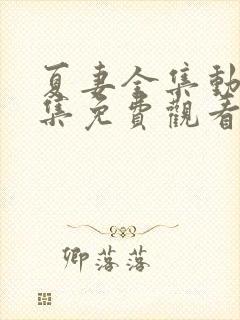 夏妻全集動
集免費觀看
卿落落